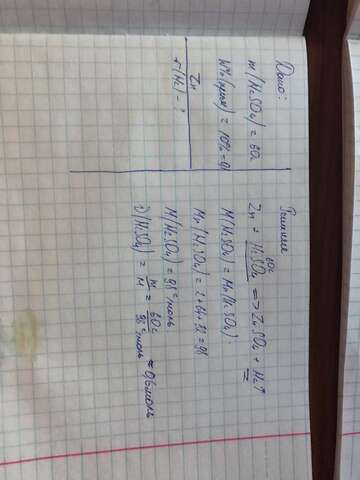 Дано:
m(H₂SO₄) = 60г
W%(прим) = 10% = 0,1
Zn
V(H₂) - ?
Решение
60г
Zn + H₂SO₄ => ZnSO₄ + H₂↑
M(H₂SO₄) = Mr(H₂SO₄);
Mr(H₂SO₄) = 2+64+32=98
M(H₂SO₄) = 98 г/моль
ν(H₂SO₄) = m/M = 60г/98 г/моль ≈ 0,6 моль